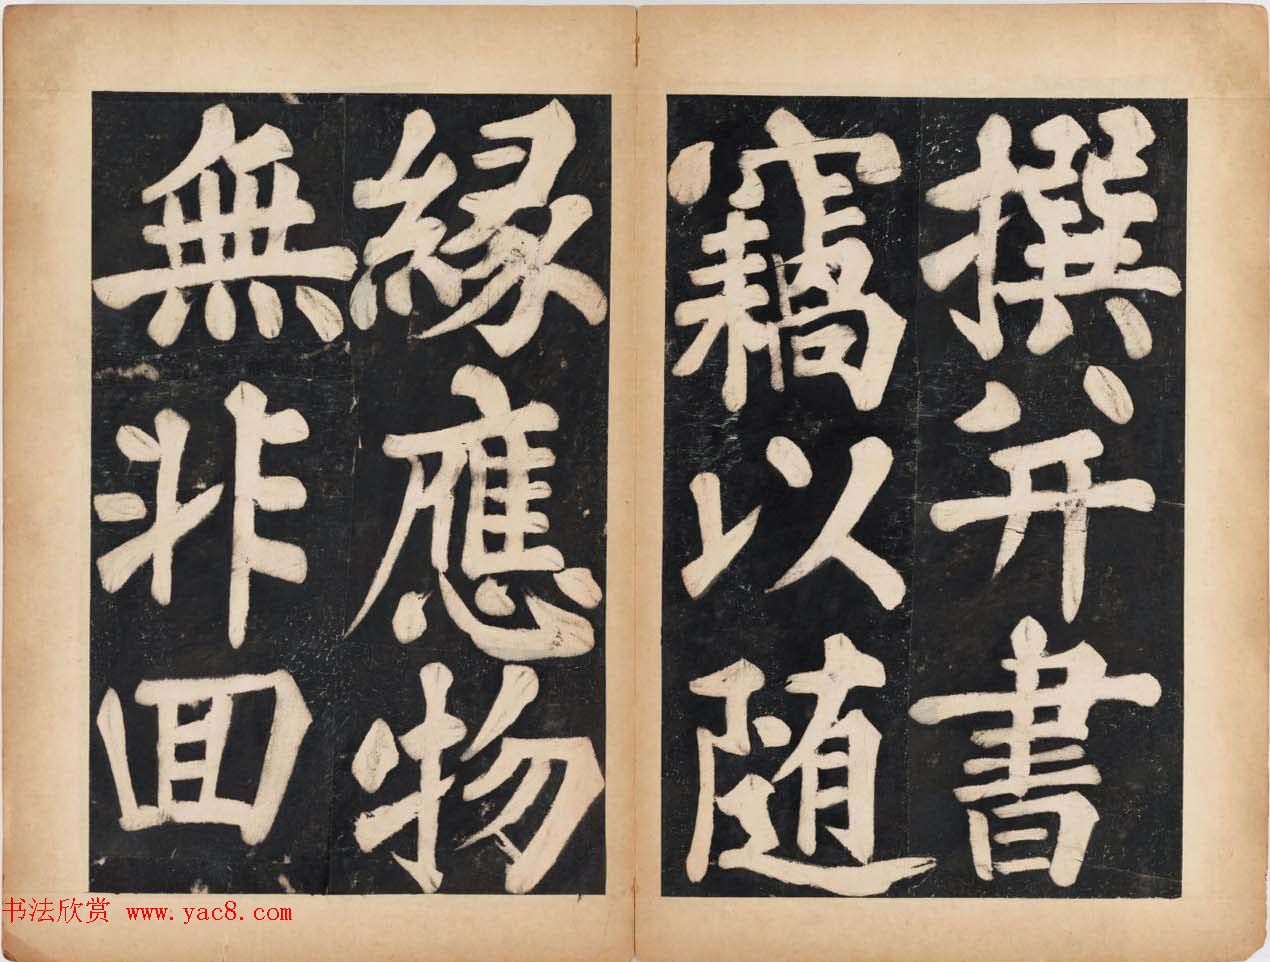 撰并書
竊以随
緣應物
無非回
书法欣赏 www.yac8.com